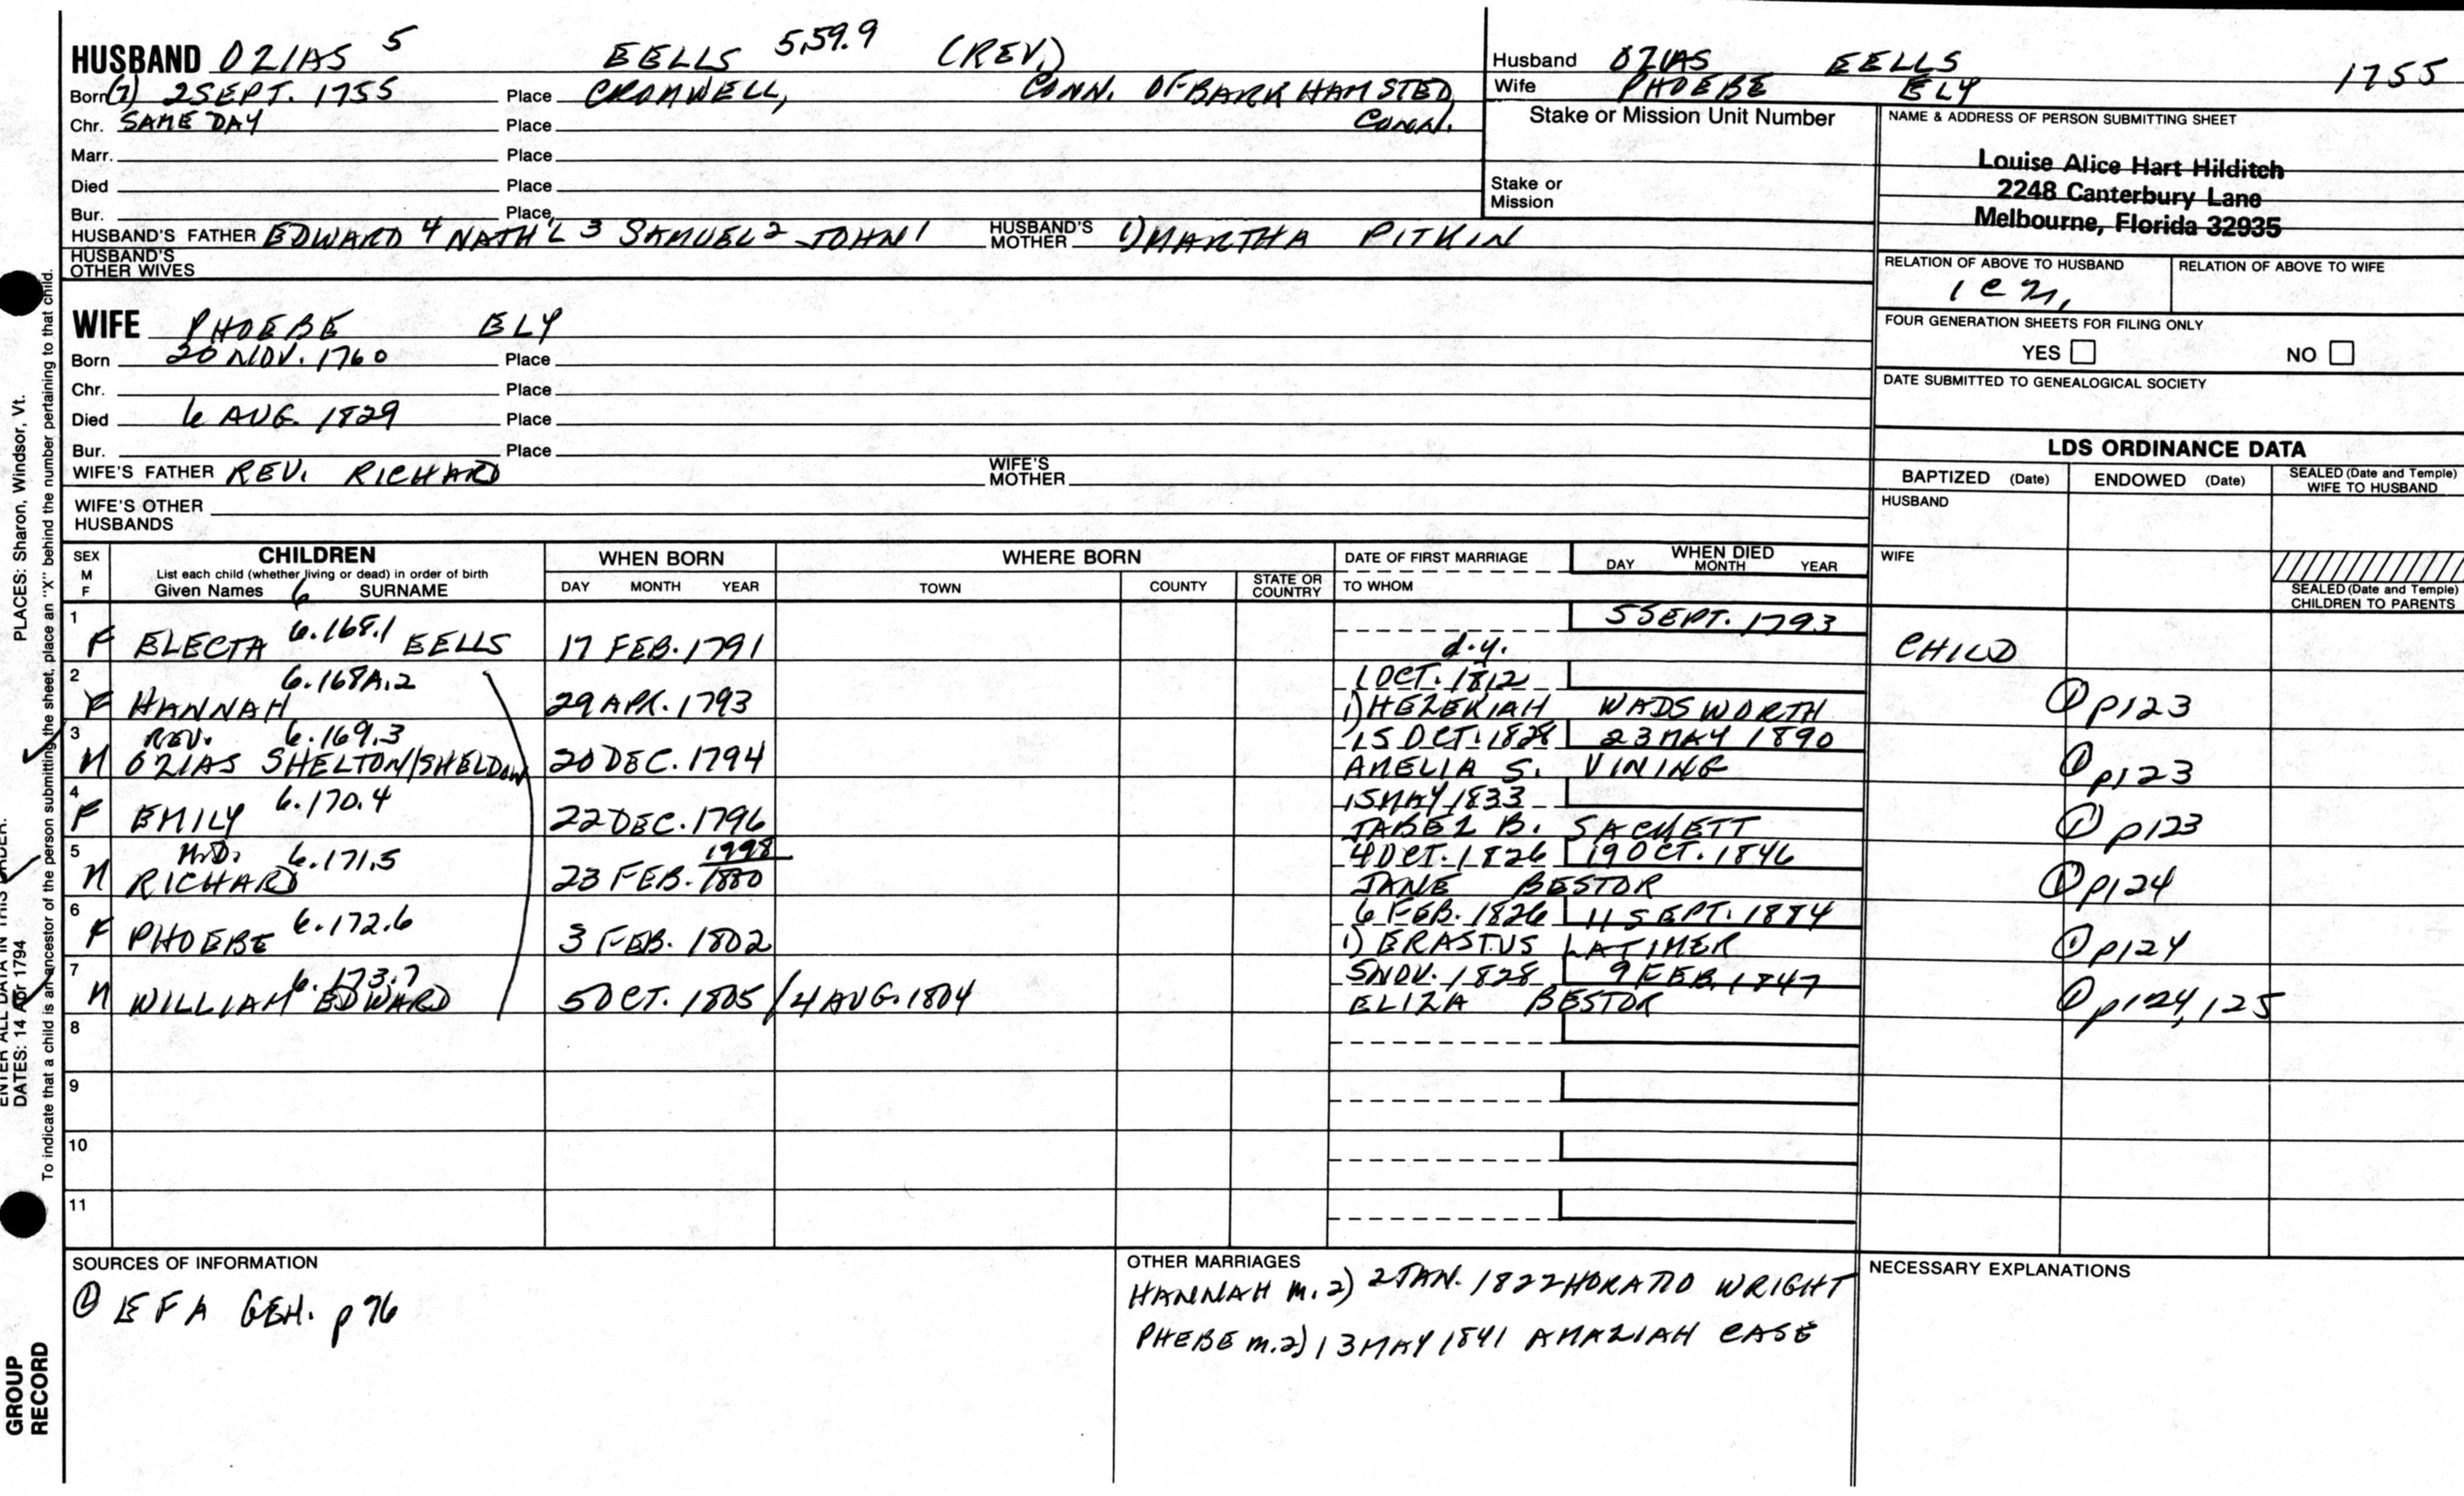 HUSBAND OZIAS 5 EELLS 5.59.9 (REV.)
Born (7) 2 SEPT. 1755 Place CROMWELL, CONN. OF BARKHAMSTED,
Chr. SAME DAY Place CONN.
Marr. Place
Died Place
Bur. Place
HUSBAND'S FATHER EDWARD 4 NATH'L 3 SAMUEL 2 JOHN 1 HUSBAND'S MOTHER 1) MARTHA PITKIN
HUSBAND'S OTHER WIVES
WIFE PHOEBE ELY
Born 20 NOV. 1760 Place
Chr. Place
Died 6 AUG. 1829 Place
Bur. Place
WIFE'S FATHER REV. RICHARD WIFE'S MOTHER
WIFE'S OTHER HUSBANDS
Husband OZIAS EELLS 1755
Wife PHOEBE ELY
Stake or Mission Unit Number
Stake or Mission
NAME & ADDRESS OF PERSON SUBMITTING SHEET
Louise Alice Hart Hilditch
2248 Canterbury Lane
Melbourne, Florida 32935
RELATION OF ABOVE TO HUSBAND RELATION OF ABOVE TO WIFE
FOUR GENERATION SHEETS FOR FILING ONLY
YES NO
DATE SUBMITTED TO GENEALOGICAL SOCIETY
LDS ORDINANCE DATA
BAPTIZED (Date) ENDOWED (Date) SEALED (Date and Temple) WIFE TO HUSBAND
HUSBAND
WIFE
SEALED (Date and Temple) CHILDREN TO PARENTS
SEX M F
CHILDREN
List each child (whether living or dead) in order of birth
Given Names 6 SURNAME
WHEN BORN
DAY MONTH YEAR
WHERE BORN
TOWN COUNTY STATE OR COUNTRY
DATE OF FIRST MARRIAGE
TO WHOM
WHEN DIED
DAY MONTH YEAR
1 6.168.1 5 SEPT. 1793
F ELECTA EELLS 17 FEB. 1791 d.y. CHILD
2 6.168A.2 1 OCT. 1812
F HANNAH 29 APR. 1793 1) HEZEKIAH WADSWORTH ① p123
3 REV. 6.169.3 15 OCT. 1828 23 MAY 1890
M OZIAS SHELTON/SHELDON 20 DEC. 1794 AMELIA S. VINING ① p123
4 6.170.4 15 MAY 1833
F EMILY 22 DEC. 1796 JABEZ B. SACKETT ① p123
5 M.D. 6.171.5 4 OCT. 1826 19 OCT. 1846
M RICHARD 23 FEB. JANE BESTOR ① p124
6 6.172.6 6 FEB. 1826 11 SEPT. 1884
F PHOEBE 3 FEB. 1802 1) ERASTUS LATIMER ① p124
7 6.173.7 5 NOV. 1828 9 FEB. 1847
M WILLIAM EDWARD 5 OCT. 1805 / 4 AUG. 1804 ELIZA BESTOR ① p124, 125
8
9
10
11
SOURCES OF INFORMATION
① EFA GEN. p 76
OTHER MARRIAGES
HANNAH m. 2) 2 JAN. 1822 HORATIO WRIGHT
PHEBE m. 2) 13 MAY 1841 AMAZIAH CASE
NECESSARY EXPLANATIONS
PLACES: Sharon, Windsor, Vt.
To indicate that a child is an ancestor of the person submitting the sheet, place an "X" behind the number pertaining to that child.
ENTER ALL DATA IN THIS ORDER:
DATES: 14 Apr 1794
GROUP
RECORD